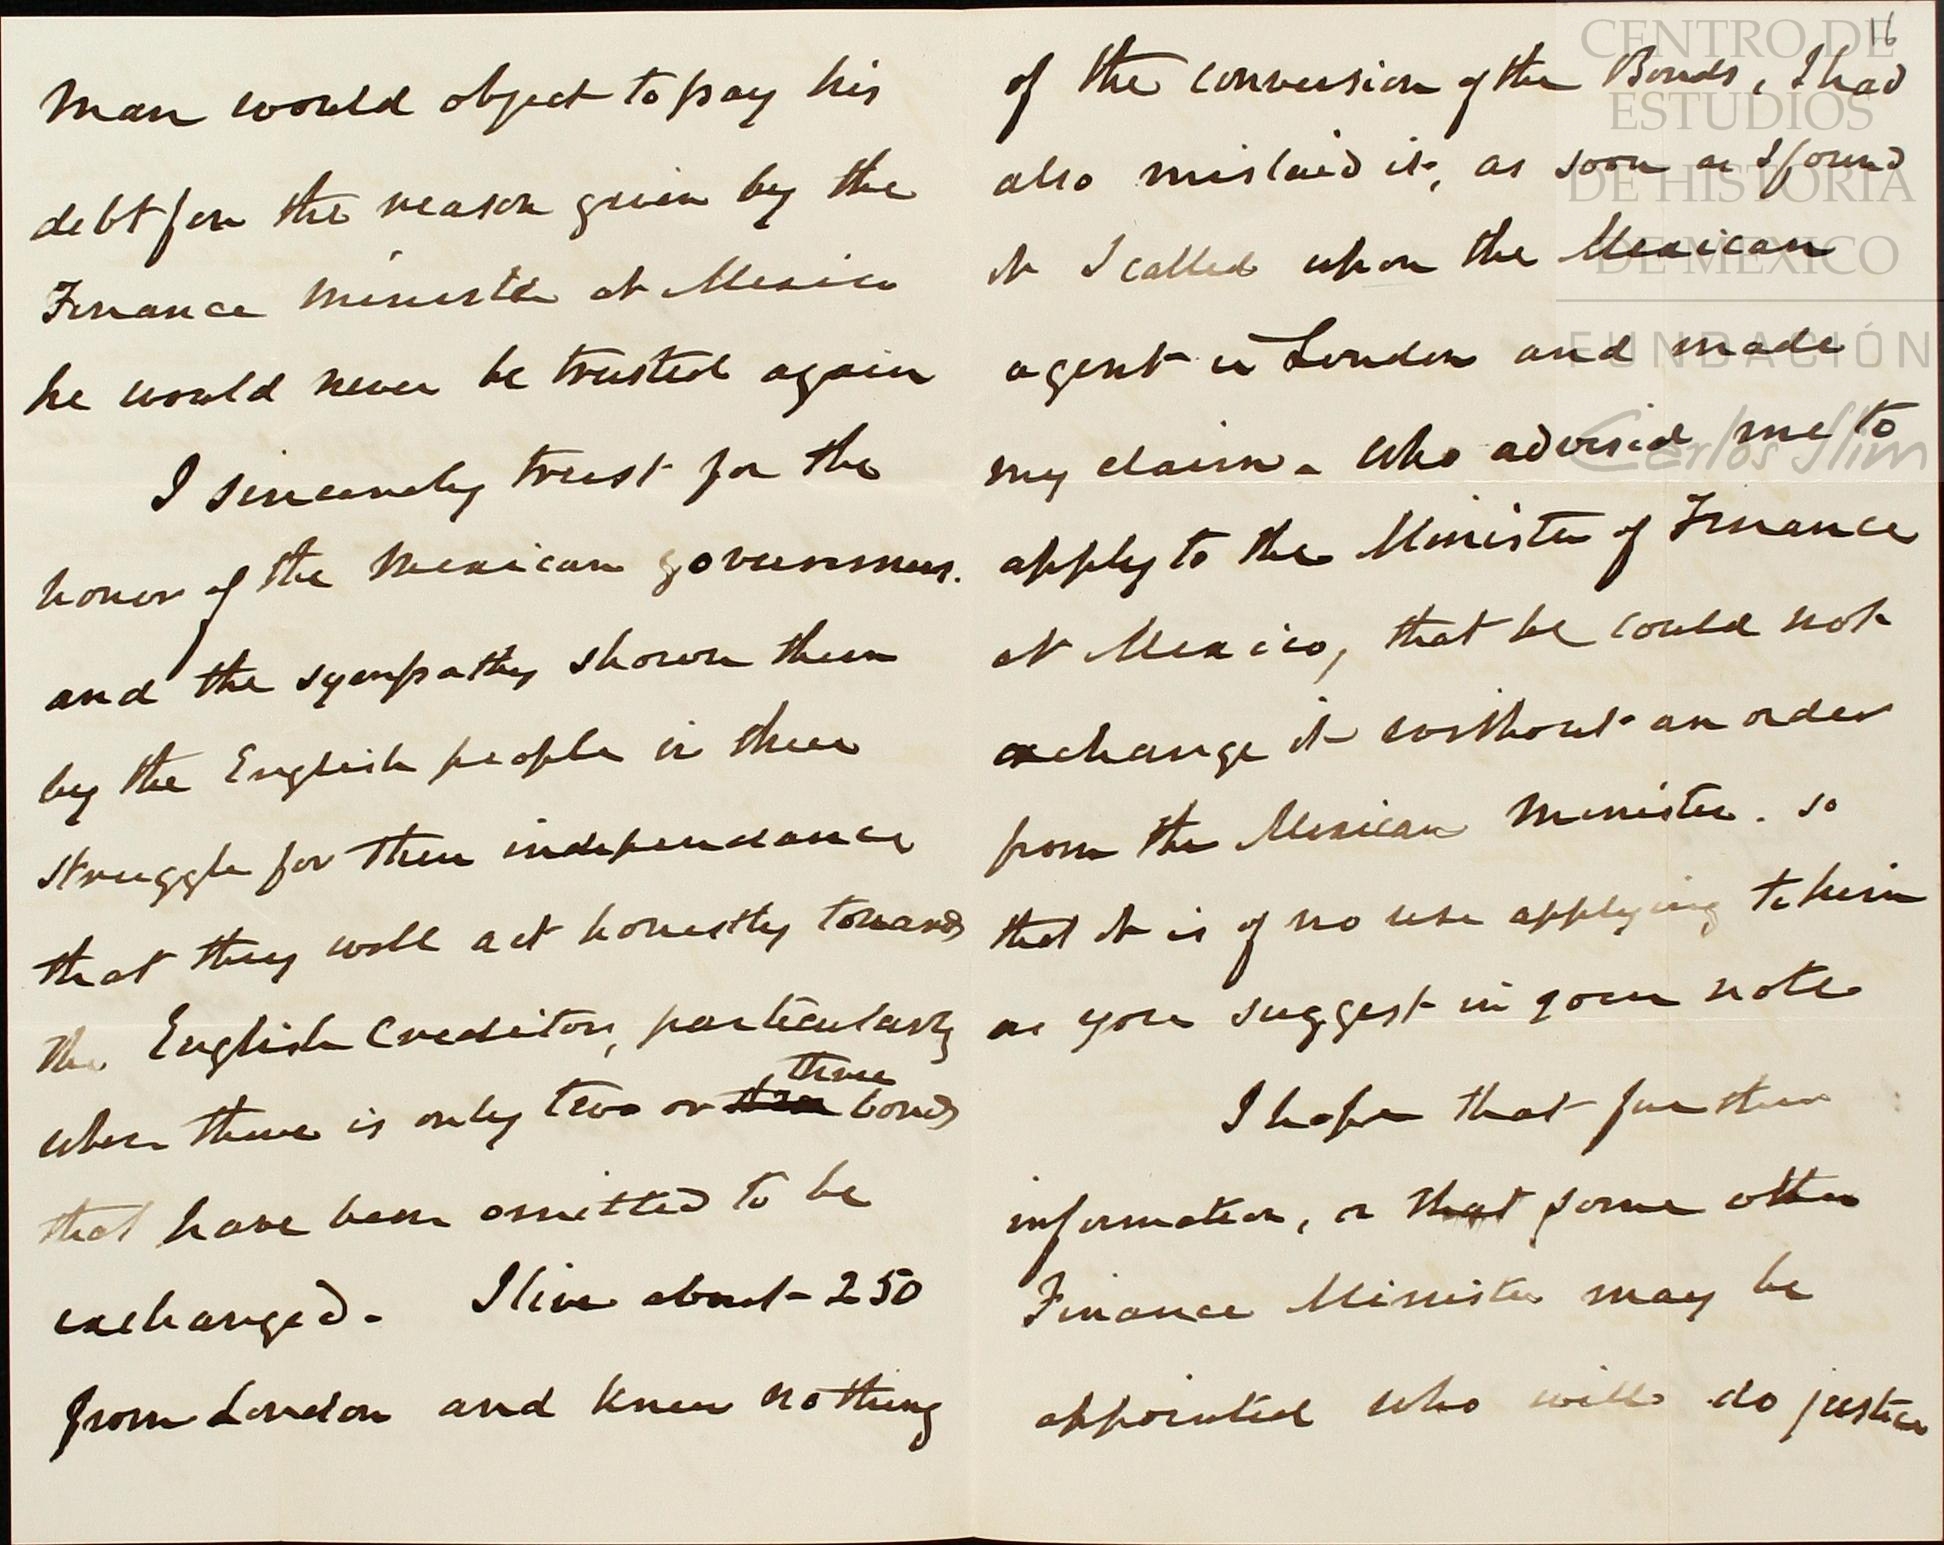 man would object to pay his
debt for the reason given by the
Finance minister at Mexico
he would never be trusted again
I sincerely trust for the
honor of the Mexican governmen.
and the sympathy shown them
by the English people in their
struggle for their independance
that they will act honestly towards
the English Creditors, particularly
three
when there is only two or bonds
that have been omitted to be
exchanged. I live about 250
from London and knew nothing
16
of the conversion of the Bonds, I had
also mislaid it, as soon as I found
it I called upon the Mexican
agent in London and made
my claim. who advised me to
apply to the Minister of Finance
at Mexico, that he could not
exchange it without an order
from the Mexican Minister. so
that it is of no use applying to him
as you suggest in your note
I hope that further
information, or that some other
Finance Minister may be
appointed who will do justice
CENTRO DE
ESTUDIOS
DE HISTORIA
DE MEXICO
FUNDACIÓN
Carlos Slim